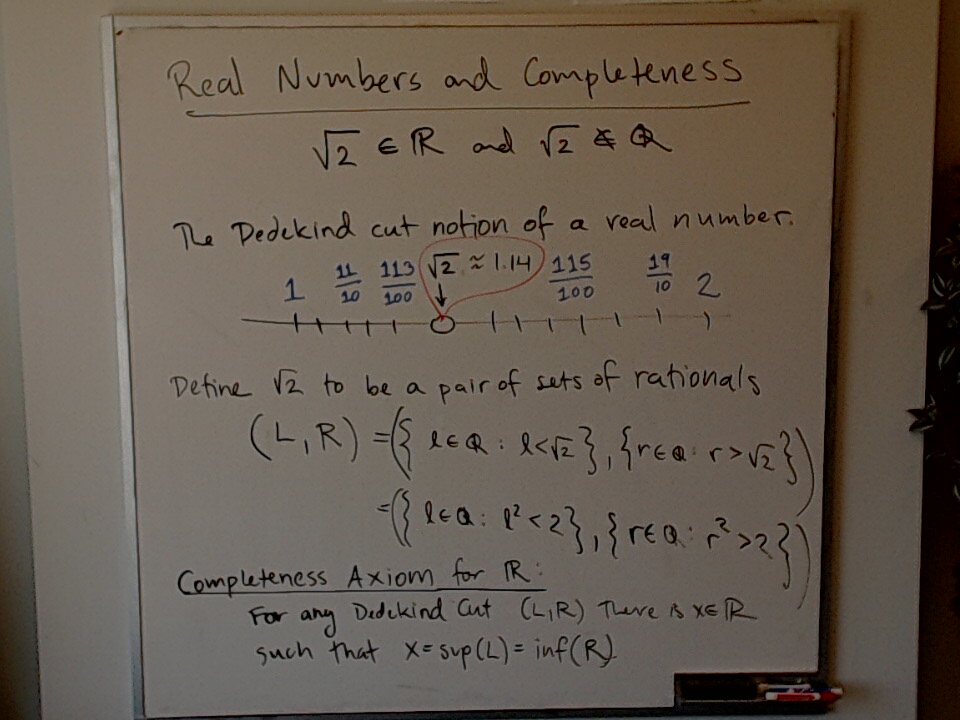 Real Numbers and Completeness
√2 ∈ ℝ and √2 ∉ ℚ
The Dedekind cut notion of a real number.
1 11/10 113/100 √2 ≈ 1.14 115/100 19/10 2
Define √2 to be a pair of sets of rationals
(L,R) = ({ l∈ℚ : l<√2 }, {r∈ℚ : r>√2})
= ({ l∈ℚ : l²<2 }, {r∈ℚ : r²>2})
Completeness Axiom for ℝ:
For any Dedekind Cut (L,R) There is x∈ℝ
such that x=sup(L)=inf(R)